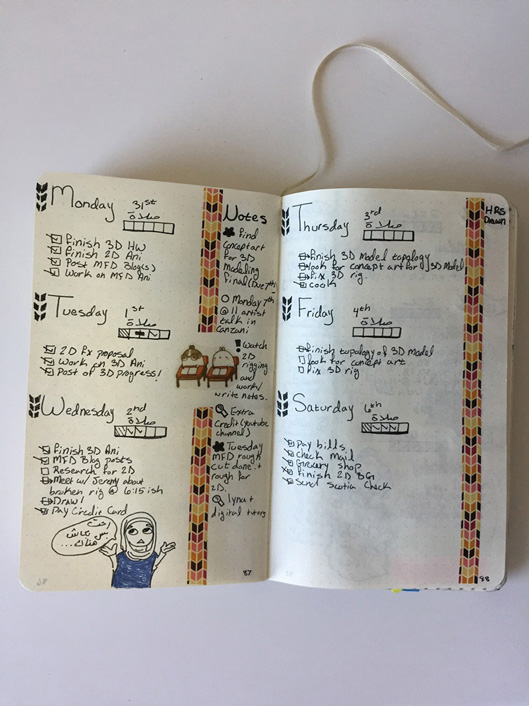 Monday 31st
صلاة
Finish 3D HW
Finish 2D Ani
Post MFD Blog(s)
Work on MFD Ani
Tuesday 1st
صلاة
2D Fx proposal
Work on 3D Ani
Post of 3D progress!
Wednesday 2nd
صلاة
Finish 3D Ani
MFD Blog posts
Research for 2D
Meet w/ Jeremy about
broken rig @ 6:15 ish
Draw!
Pay Credit Card
87
Notes
Find
Concept art
for 3D
Modeling
Final (Due 7th)
Monday 7th
@ 11 artist
talk in
! Watch
2D
rigging
and
work/
write notes.
Extra
Credit (youtube
channel)
Tuesday
MFD rough
cut done +
rough for
2D
lynda +
digital tutors
Thursday 3rd
صلاة
Finish 3D Model topology
look for concept art for 3D Model
Fix 3D rig
Cook
Friday 4th
صلاة
Finish topology of 3D model
look for concept art
Fix 3D rig
Saturday
صلاة
Pay bills
Check Mail
Grocery shop
Finish 2D BG
Send Scotia Check
HRS
Dawn
88